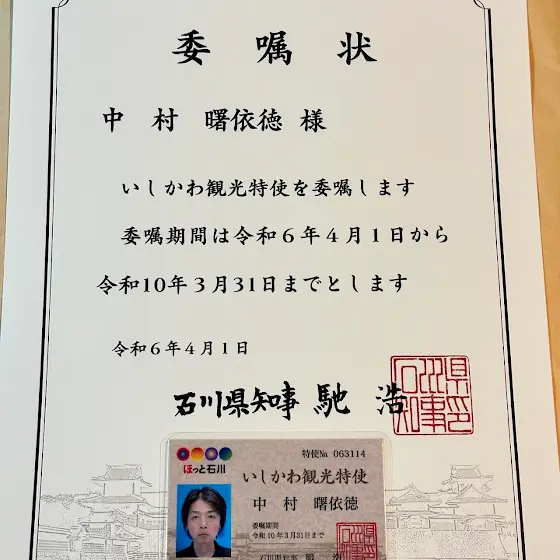 委嘱状
中村 曙依徳 様
いしかわ観光特使を委嘱します
委嘱期間は令和6年4月1日から
令和10年3月31日までとします
令和6年4月1日
石川県知事 馳 浩
石川県知事印
ほっと石川
特使№ 063114
いしかわ観光特使
中村 曙依徳
委嘱期間
令和10年3月31日まで
石川県知事 馳 浩